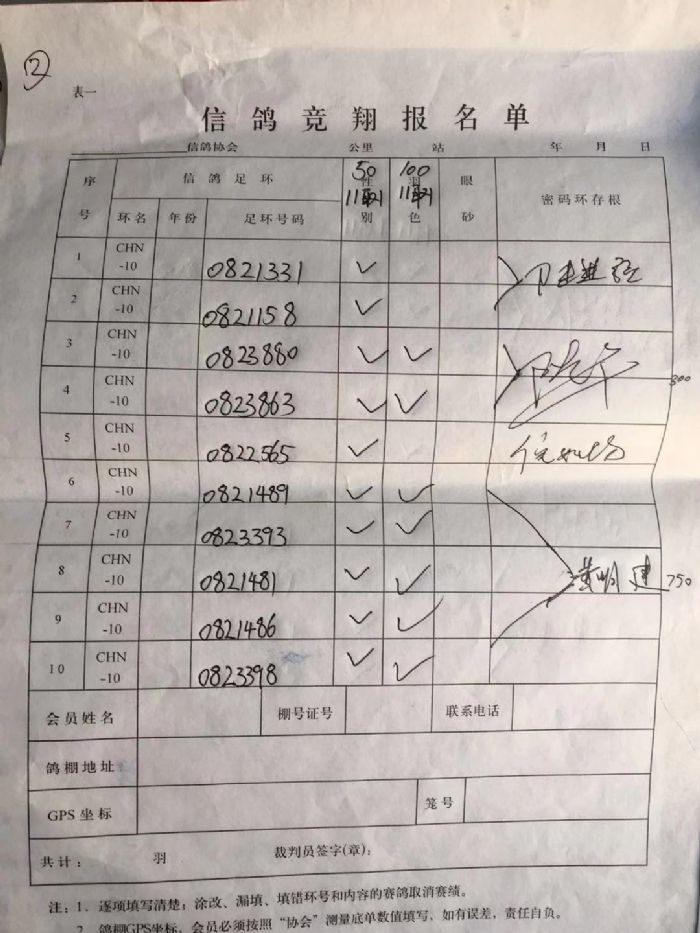 ②
表一
信鸽竞翔报名单
信鸽协会 公里 站 年 月 日
序号 信鸽足环 性别 羽色 眼砂 密码环存根
50 100
11取1 11取1
环名 年份 足环号码
1 CHN-10 0821331 ✓
2 CHN-10 0821158 ✓
3 CHN-10 0823880 ✓ ✓
300
4 CHN-10 0823863 ✓ ✓
5 CHN-10 0822565 ✓
6 CHN-10 0821489 ✓ ✓
7 CHN-10 0823393 ✓ ✓
8 CHN-10 0821481 ✓ ✓ 750
9 CHN-10 0821486 ✓ ✓
10 CHN-10 0823398 ✓ ✓
会员姓名 棚号证号 联系电话
鸽棚地址
GPS坐标 笼号
共计: 羽 裁判员签字(章):
注:1. 逐项填写清楚;涂改、漏填、填错环号和内容的赛鸽取消赛绩。
2. 鸽棚GPS坐标,会员必须按照“协会”测量底单数值填写,如有误差,责任自负。